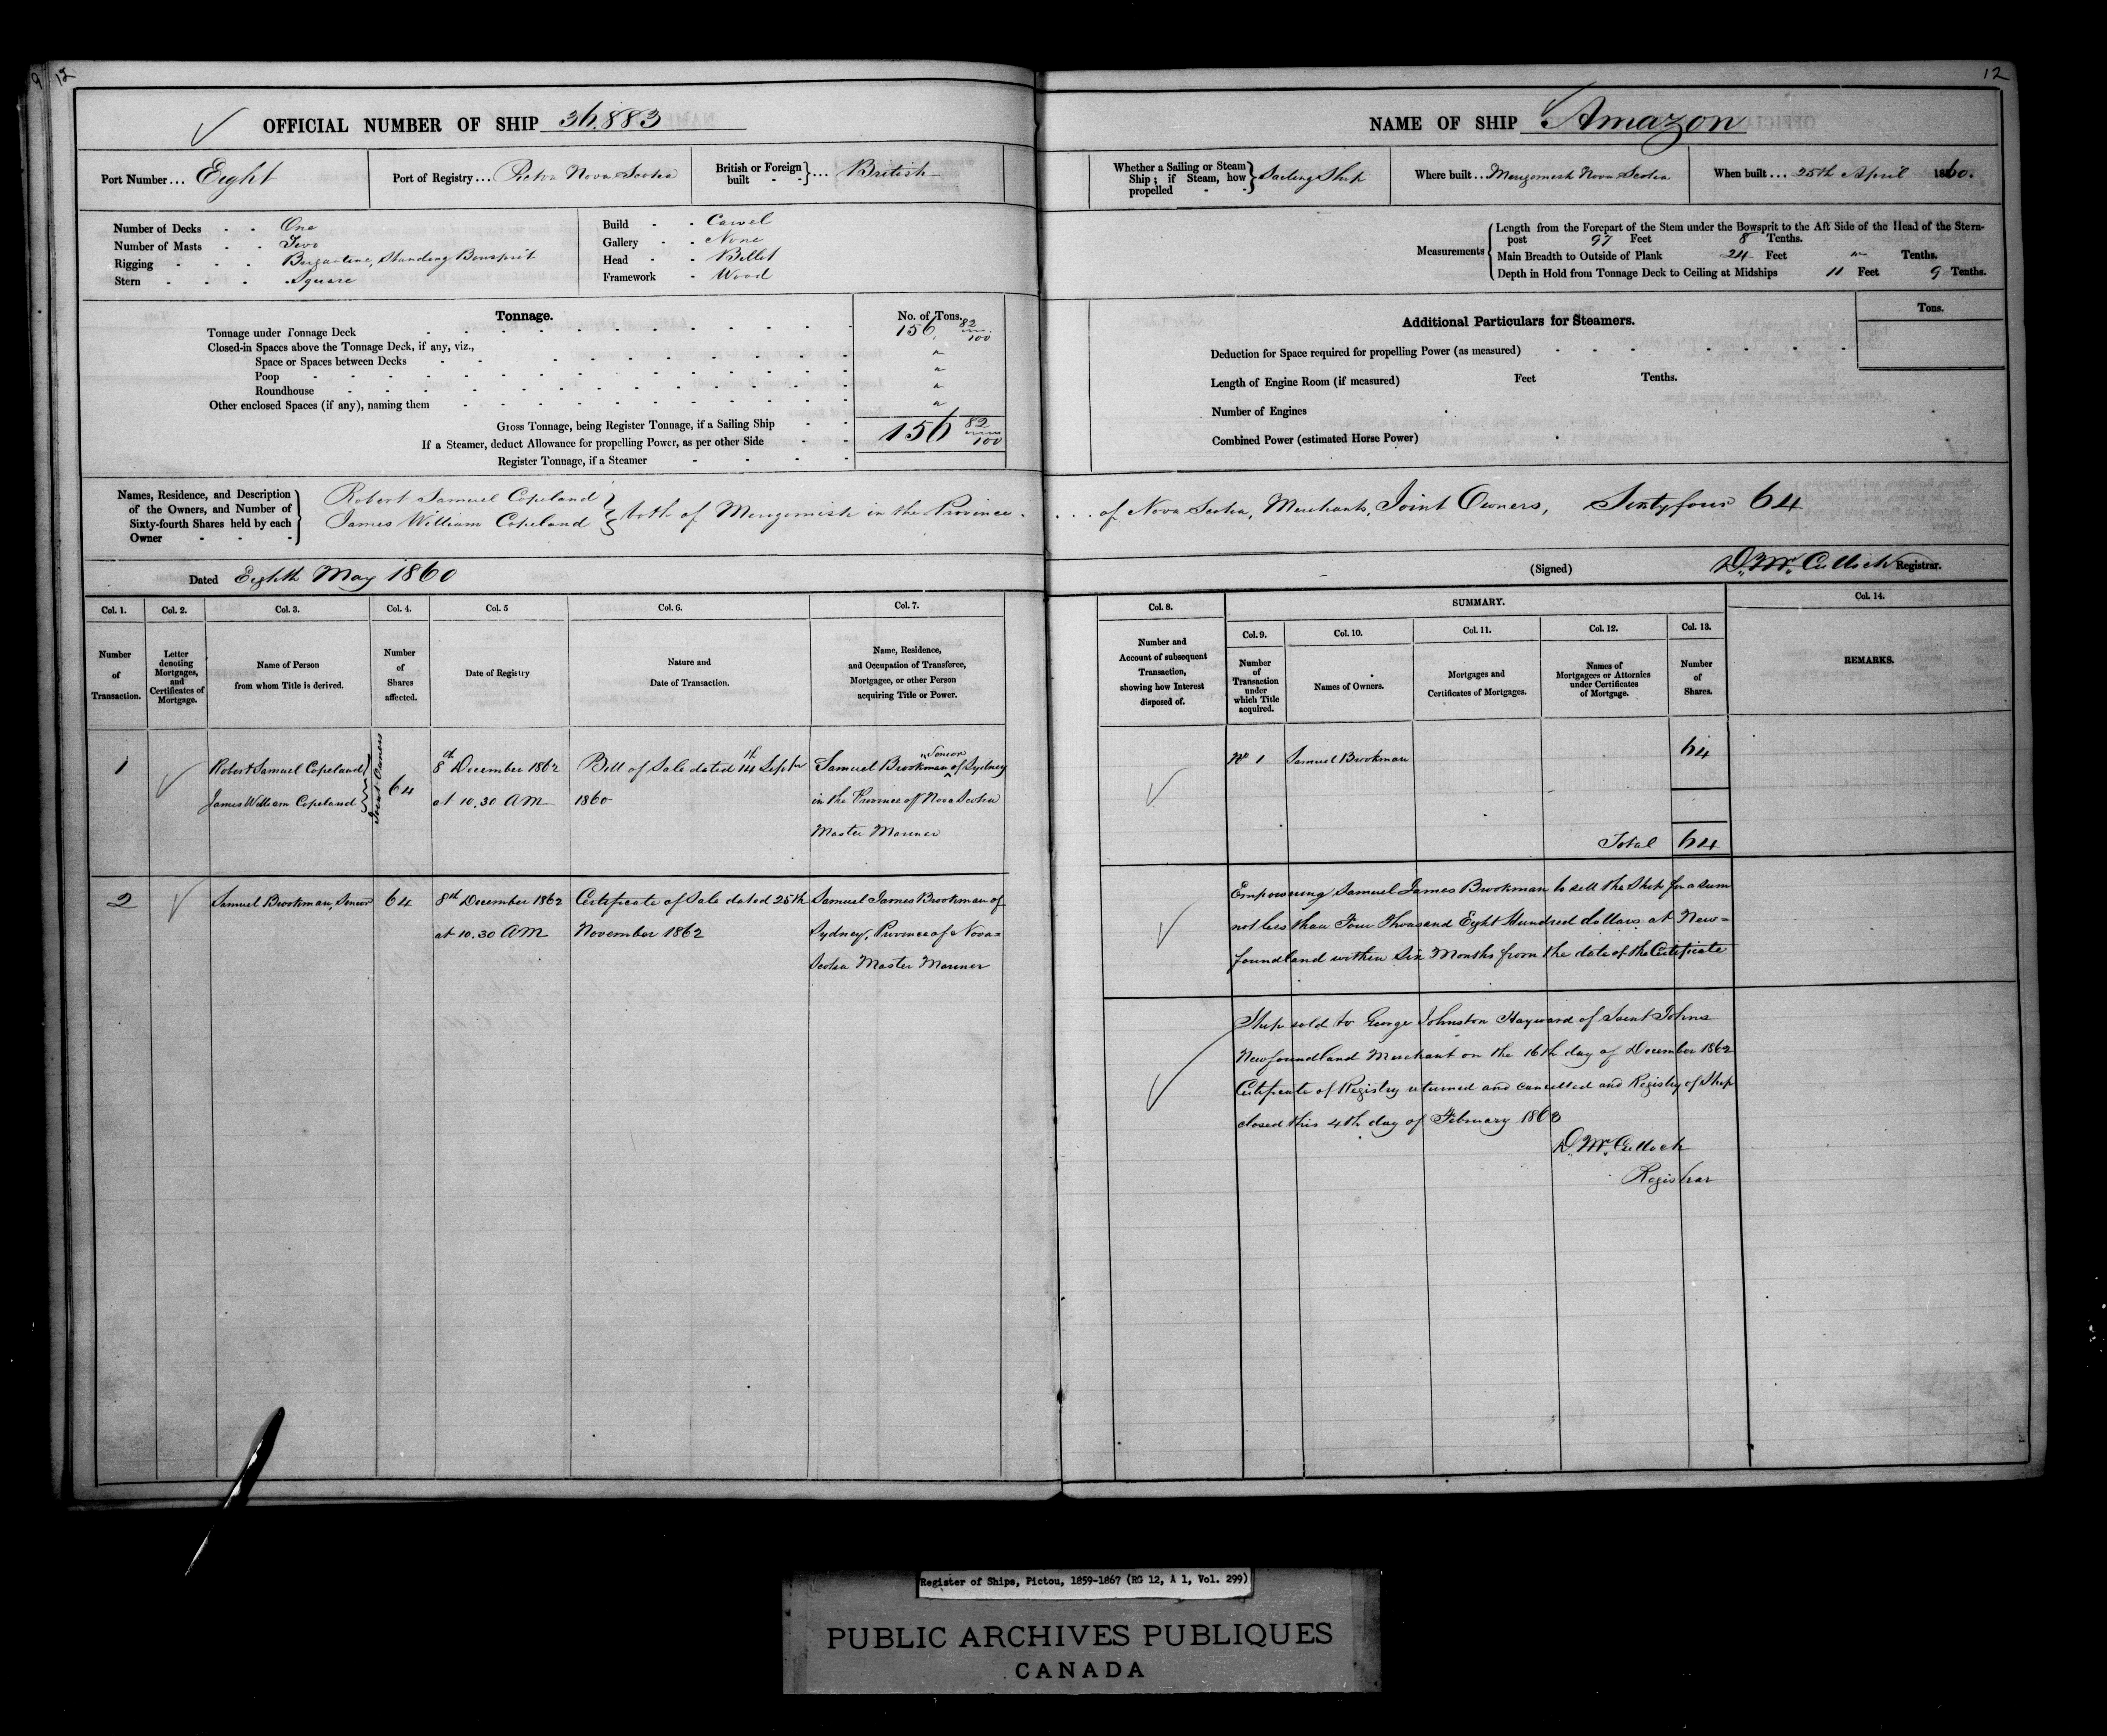 9 12
12
OFFICIAL NUMBER OF SHIP 36.883
Port Number... Eight
Port of Registry... Pictou Nova Scotia
British or Foreign built - - } ... British
Number of Decks - - One
Number of Masts - - Two
Rigging - - - Brigantine, Standing Bowsprit
Stern - - - Square
Build - - Carvel
Gallery - - None
Head - - Billet
Framework - Wood
Tonnage.
No. of Tons.
Tonnage under Tonnage Deck 156 82/100
Closed-in Spaces above the Tonnage Deck, if any, viz.,
Space or Spaces between Decks "
Poop "
Roundhouse "
Other enclosed Spaces (if any), naming them "
Gross Tonnage, being Register Tonnage, if a Sailing Ship 156 82/100
If a Steamer, deduct Allowance for propelling Power, as per other Side
Register Tonnage, if a Steamer
Names, Residence, and Description
of the Owners, and Number of
Sixty-fourth Shares held by each
Owner - - -
Robert Samuel Copeland
James William Copeland } both of Merigomish in the Province .
Dated Eighth May 1860
NAME OF SHIP Amazon
Whether a Sailing or Steam
Ship; if Steam, how
propelled - - } Sailing Ship
Where built... Merigomish Nova Scotia
When built... 25th April 1860.
Measurements
Length from the Forepart of the Stem under the Bowsprit to the Aft Side of the Head of the Stern-
post 97 Feet 8 Tenths.
Main Breadth to Outside of Plank 24 Feet " Tenths.
Depth in Hold from Tonnage Deck to Ceiling at Midships 11 Feet 9 Tenths.
Additional Particulars for Steamers.
Tons.
Deduction for Space required for propelling Power (as measured)
Length of Engine Room (if measured) Feet Tenths.
Number of Engines
Combined Power (estimated Horse Power)
. . . of Nova Scotia, Merchants, Joint Owners, Sixtyfour 64
(Signed) D. McCulloch Registrar.
Col. 1.
Number
of
Transaction.
Col. 2.
Letter
denoting
Mortgages,
and
Certificates of
Mortgage.
Col. 3.
Name of Person
from whom Title is derived.
Col. 4.
Number
of
Shares
affected.
Col. 5
Date of Registry
Col. 6.
Nature and
Date of Transaction.
Col. 7.
Name, Residence,
and Occupation of Transferee,
Mortgagee, or other Person
acquiring Title or Power.
Col. 8.
Number and
Account of subsequent
Transaction,
showing how Interest
disposed of.
SUMMARY.
Col. 9.
Number
of
Transaction
under
which Title
acquired.
Col. 10.
Names of Owners.
Col. 11.
Mortgages and
Certificates of Mortgages.
Col. 12.
Names of
Mortgagees or Attornies
under Certificates
of Mortgage.
Col. 13.
Number
of
Shares.
Col. 14.
REMARKS.
1
Robert Samuel Copeland
James William Copeland
Joint Owners
64
8th December 1862
at 10.30 AM
Bill of Sale dated 14th Septbr
1860
Samuel Brookman Senior of Sydney
in the Province of Nova Scotia
Master Mariner
No 1
Samuel Brookman
64
Total 64
2
Samuel Brookman, Senior
64
8th December 1862
at 10.30 AM
Certificate of Sale dated 25th
November 1862
Samuel James Brookman of
Sydney, Province of Nova=
Scotia Master Mariner
Empowering Samuel James Brookman to sell the Ship for a sum
not less than Four Thousand Eight Hundred dollars at New=
foundland within Six Months from the date of the Certificate
Ship sold to George Johnston Hayward of Saint Johns
Newfoundland Merchant on the 16th day of December 1862
Certificate of Registry returned and cancelled and Registry of Ship
closed this 4th day of February 1863
D. McCulloch
Registrar
Register of Ships, Pictou, 1859-1867 (RG 12, A 1, Vol. 299)
PUBLIC ARCHIVES PUBLIQUES
CANADA